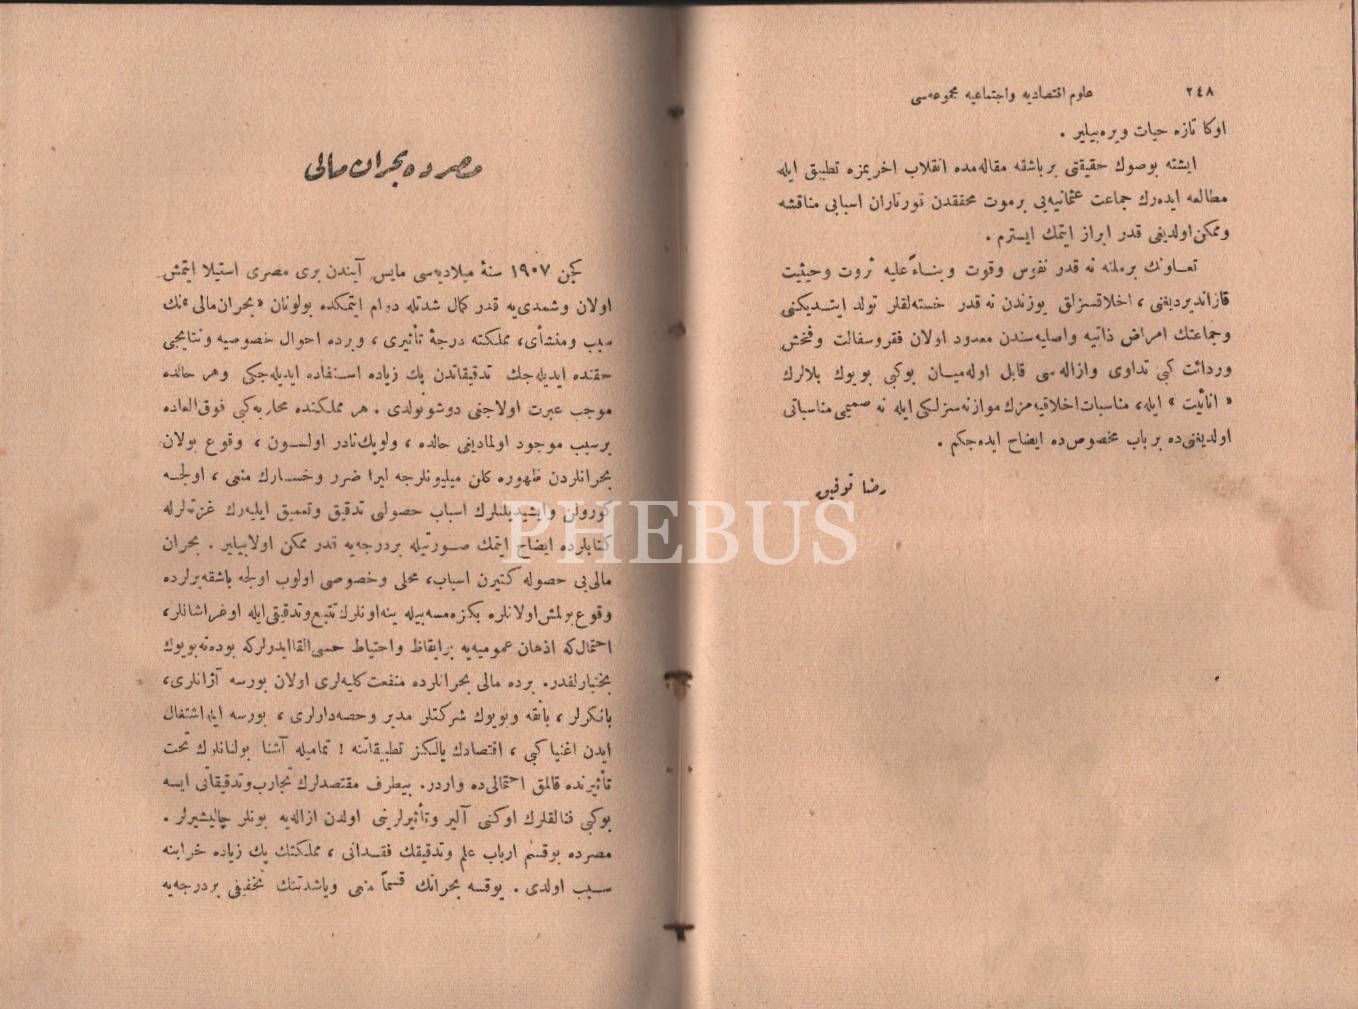 ٢٤٨
علوم اقتصاديه واجتماعيه مجموعه‌سى
اوكا تازه حيات ويره‌بيلير .
ايشته بوصوك حقيقتى برباشقه مقاله‌مده انقلاب اخريمزه تطبيق ايله
مطالعه ايده‌رك جماعت عثمانيه‌يى برموت محققدن قورتاران اسبابى مناقشه
وممكن‌اولديغى قدر ابراز ايتمك ايسترم .
تعاونك برملته نه قدر نفوس وقوت وبناءً عليه ثروت وحيثيت
قازانديرديغى ، اخلاقسزلق يوزندن نه قدر خسته‌لقلر تولد ايتديكنى
وجماعتك امراض ذاتيه واصليه‌سندن معدود اولان فقروسفالت وفحش
وردائت كبى تداوى وازاله‌سى قابل اوله‌ميان بوكبى بويوك بلالرك
« انائيت » ايله، مناسبات اخلاقيه‌مزك موازنه‌سزلكى ايله نه صميمى مناسباتى
اولديغنى‌ده بر باب مخصوص‌ده ايضاح ايده‌جكم .
رضا توفيق
مصرده بحران مالى
كچن ١٩٠٧ سنهٔ ميلاديه‌سى مايس آيندن برى مصرى استيلا ايتمش
اولان وشمدى‌يه قدر كمال شدتله دوام ايتمكده بولونان «بحران مالى»نك
سبب ومنشأى، مملكتنه درجهٔ تأثيرى ، وبرده احوال خصوصيه ونتايجى
حقنده ايديله‌جك تدقيقاتدن پك زياده استفاده ايديله‌جكى وهر حالده
موجب عبرت اولاجغى دوشونولدى . هر مملكتده محاربه‌كبى فوق‌العاده
برسبب موجود اولماديغى حالده ، ولوپك‌نادر اولسون ، وقوع بولان
بحرانلردن ظهوره كلن ميليونلرجه ليرا ضرر وخسارك منعى ، اولجه
كورولن وايشيديلنلرك اسباب حصولنى تدقيق وتعميق ايليه‌رك غزته‌لرله
كتابلرده ايضاح ايتمك صورتيله بردرجه‌يه قدر ممكن اولابيلير . بحران
مالى‌يى حصوله كتيرن اسباب، محلى وخصوصى اولوب اولجه باشقه‌يرلرده
وقوع‌بولمش‌اولانلره بكزه‌مسه‌بيله ينه‌اونلرك‌تتبع‌وتدقيقى‌ايله اوغراشانلر،
احتمال‌كه اذهان عموميه‌يه برايقاظ واحتياط حسى‌القاايدرلركه بوده‌نه‌بويوك
بختيارلقدر. برده مالى بحرانلرده منفعت‌كليه‌لرى اولان بورسه آژانلرى،
بانكرلر ، بانقه وبويوك شركتلر مدير وحصه‌دارلرى ، بورسه ايله‌اشتغال
ايدن اغنيا كبى ، اقتصادك يالكز تطبيقاتنه ! تماميله آشنا بولنانلرك تحت
تأثيرنده قالمق احتمالى‌ده واردر. بيطرف مقتصدلرك تجارب‌وتدقيقاتى ايسه
بوكبى فنالقلرك اوكنى آلير وتأثيرلرينى اولدن ازاله‌يه بونلر چاليشيرلر .
مصرده بوقسم ارباب علم وتدقيقك فقدانى ، مملكتك پك زياده خرابنه
سبب اولدى . يوقسه بحرانك قسماً منعى وياشدتنك تخفيفى بردرجه‌يه
PHEBUS